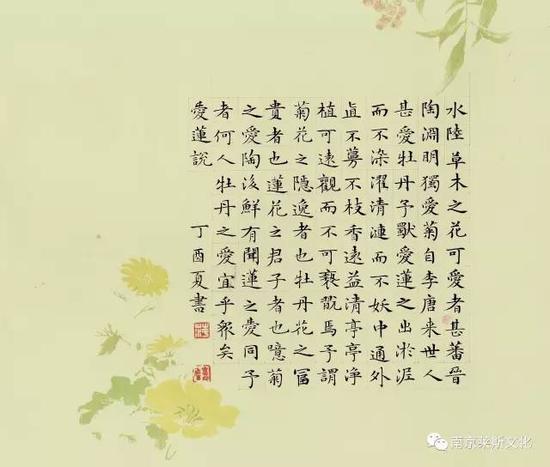 水陸草木之花可愛者甚蕃晉
陶淵明獨愛菊自李唐来世人
甚愛牡丹予獸愛蓮之出淤泥
而不染濯清漣而不妖中通外
直不蔓不枝香遠益清亭亭净
植可遠觀而不可褻翫焉予謂
菊花之隱逸者也牡丹花之冨
貴者也蓮花之君子者也噫菊
之愛陶後鮮有聞蓮之愛同予
者何人牡丹之愛宜乎眾矣
愛蓮說
丁酉夏書
南京莱斯文化